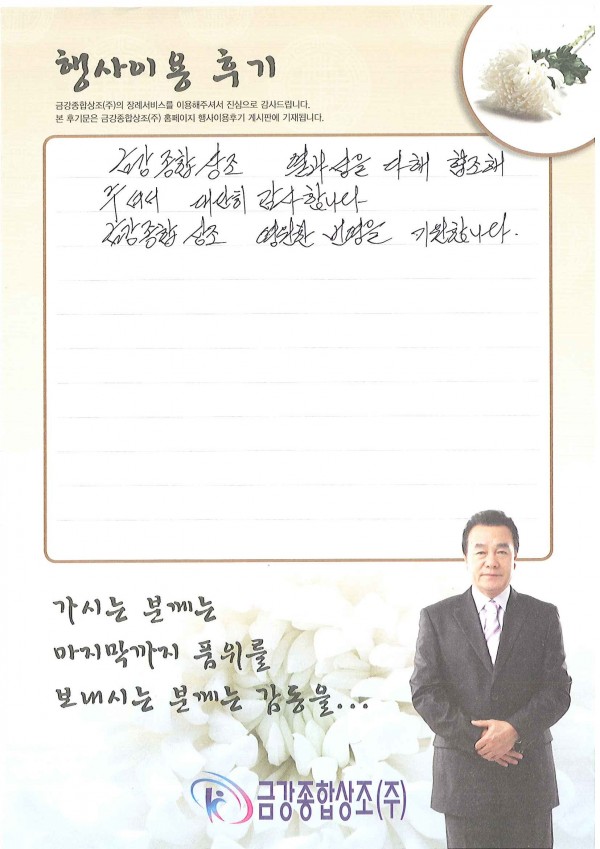 행사이용 후기
금강종합상조(주)의 장례서비스를 이용해주셔서 진심으로 감사드립니다.
본 후기문은 금강종합상조(주) 홈페이지 행사이용후기 게시판에 기재됩니다.
금강종합상조 열과 성을 다해 협조해
주셔서 대단히 감사합니다
금강종합상조 영원한 번영을 기원합니다.
가시는 분께는
마지막까지 품위를
보내시는 분께는 감동을...
금강종합상조(주)